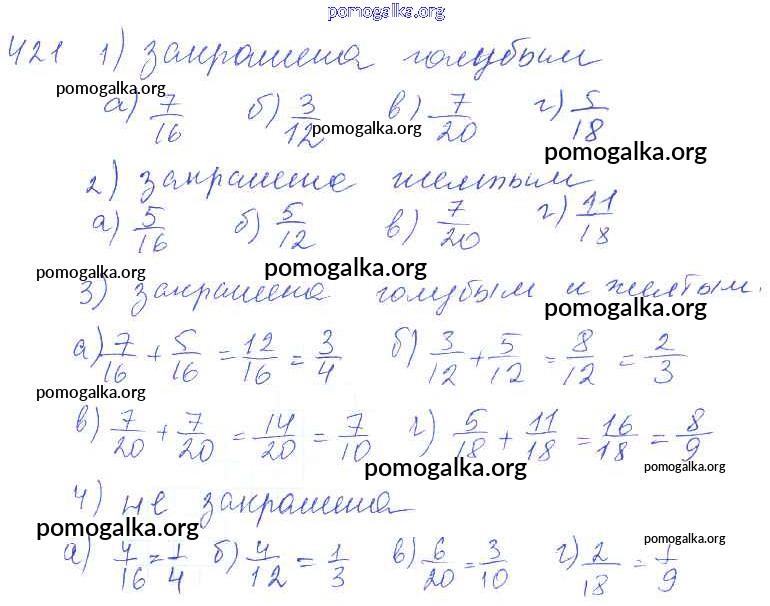 pomogalka.org
421 1) закрашена голубым
pomogalka.org
а) 7/16 б) 3/12 в) 7/20 г) 5/18
pomogalka.org
pomogalka.org
2) закрашено желтым
а) 5/16 б) 5/12 в) 7/20 г) 11/18
pomogalka.org pomogalka.org
3) закрашена голубым и желтым.
pomogalka.org
а) 7/16 + 5/16 = 12/16 = 3/4 б) 3/12 + 5/12 = 8/12 = 2/3
pomogalka.org
в) 7/20 + 7/20 = 14/20 = 7/10 г) 5/18 + 11/18 = 16/18 = 8/9
pomogalka.org pomogalka.org
4) не закрашена
pomogalka.org pomogalka.org
а) 4/16 = 1/4 б) 4/12 = 1/3 в) 6/20 = 3/10 г) 2/18 = 1/9